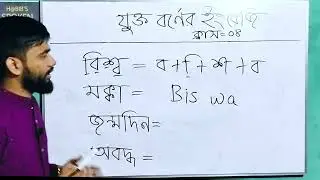 HABIB'S
SPOKEN
যুক্ত বর্ণের ইংরেজি
ক্লাস=০৪
বিশ্ব = ব+ি+শ+ব
মক্কা = Bis wa
জন্মদিন=
অবদ্ধ =